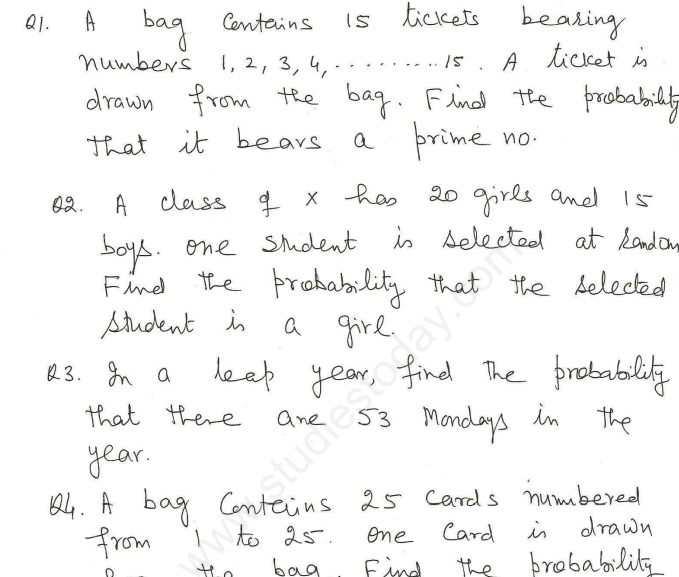 Q1. A bag Contains 15 tickets bearing
numbers 1, 2, 3, 4, ......... 15. A ticket is
drawn from the bag. Find the probability
that it bears a prime no.
Q2. A class of X has 20 girls and 15
boys. one student is selected at random
Find the probability that the selected
student is a girl.
Q3. In a leap year, find the probability
that there are 53 Mondays in the
year.
Q4. A bag Contains 25 Cards numbered
from 1 to 25. One Card is drawn
the bag. Find the probability
www.studiestoday.com